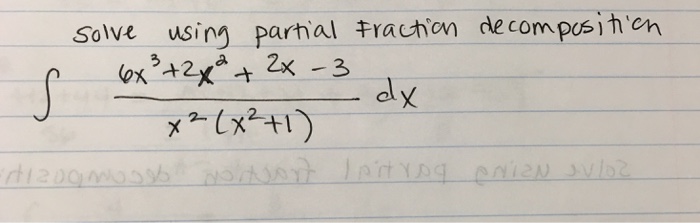 solve using partial fraction decomposition
∫ (6x³+2x²+2x-3)/(x²(x²+1)) dx